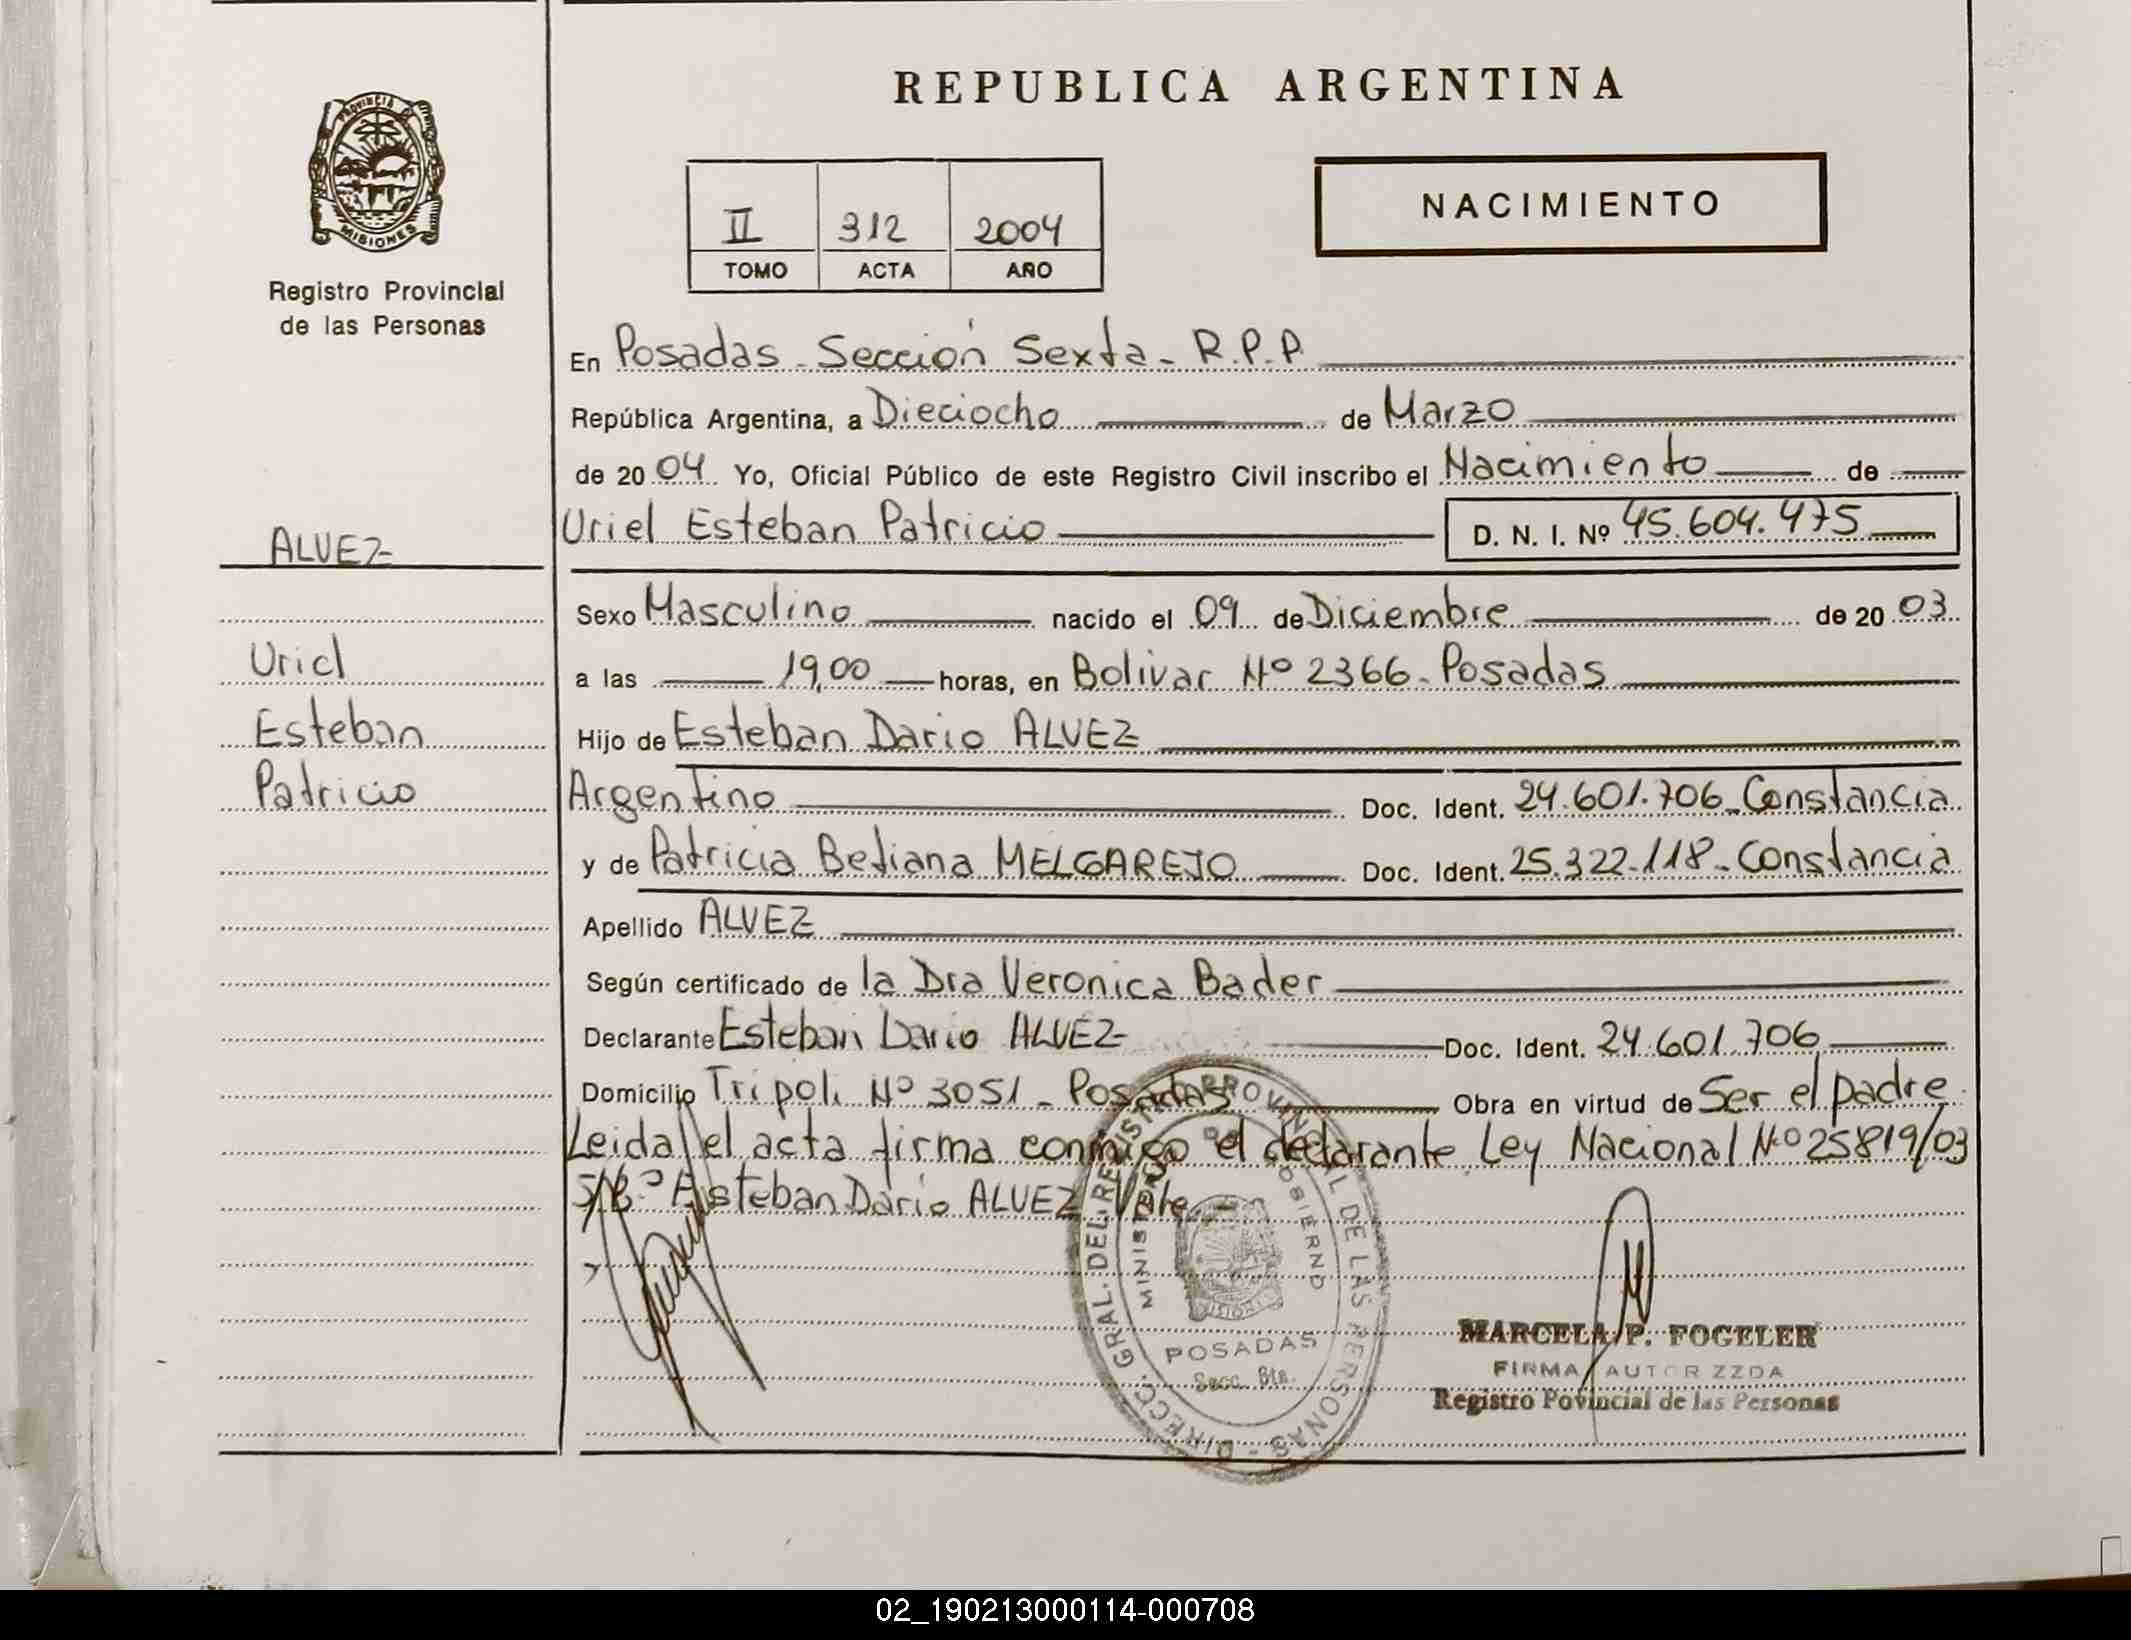 REPUBLICA ARGENTINA
PROVINCIA DE
MISIONES
Registro Provincial
de las Personas
II 312 2004
TOMO ACTA AÑO
NACIMIENTO
En Posadas - Sección Sexta - R.P.P.
República Argentina, a Dieciocho de Marzo
de 2004 Yo, Oficial Público de este Registro Civil inscribo el Nacimiento de
ALVEZ
Uriel Esteban Patricio D. N. I. Nº 45.604.475
Sexo Masculino nacido el 09 de Diciembre de 2003
Uriel
a las 19,00 horas, en Bolivar Nº 2366 - Posadas
Esteban
Hijo de Esteban Dario ALVEZ
Patricio
Argentino Doc. Ident. 24.601.706 - Constancia
y de Patricia Betiana MELGAREJO Doc. Ident. 25.322.118 - Constancia
Apellido ALVEZ
Según certificado de la Dra Veronica Bader
Declarante Esteban Dario ALVEZ Doc. Ident. 24.601.706
Domicilio Tripoli Nº 3051 - Posadas Obra en virtud de Ser el padre
Leida el acta firma conmigo el declarante Ley Nacional Nº 25819/03
S/Bº Esteban Dario ALVEZ Vale.-
DIRECC. GRAL. DEL REGISTRO PROVINCIAL DE LAS PERSONAS
MINISTERIO DE GOBIERNO
POSADAS
Secc. 6ta.
MARCELA P. FOGELER
FIRMA AUTORIZZDA
Registro Povincial de las Personas
02_190213000114-000708